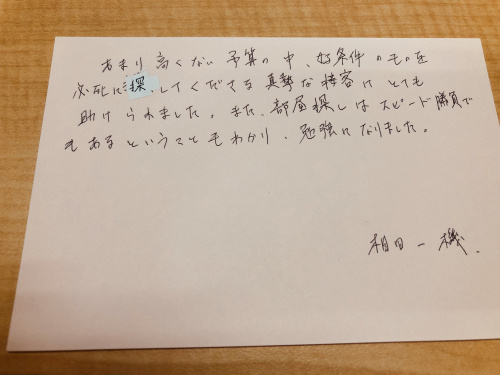 あまり高くない予算の中、好条件のものを
必死に探してくださる真摯な接客にとても
助けられました。また、部屋探しはスピード勝負で
もあるということもわかり、勉強になりました。
相田一機